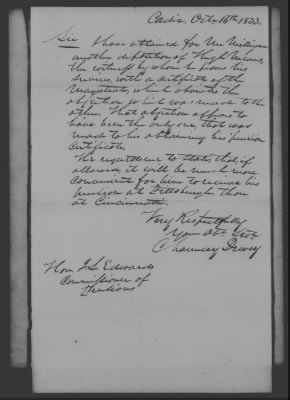 Cadiz, Octr 16th 1833.
Sir I have obtained for Mr Milligan
another deposition of Hugh
the witness by whom he proves his
services with a certificate of the
Magistrate, which obviates the
objection which was made to the
other. That objection appears to
have been the only one that was
made to his obtaining his pension
certificate.
He requests me to state, that if
allowed, it will be much more
convenient for him to receive his
pension at Pittsburgh than
at Cincinnati.
Very Respectfully
Your Obt Svt
Chauncey Dewey
Hon. J L Edwards
Commissioner of
Pensions